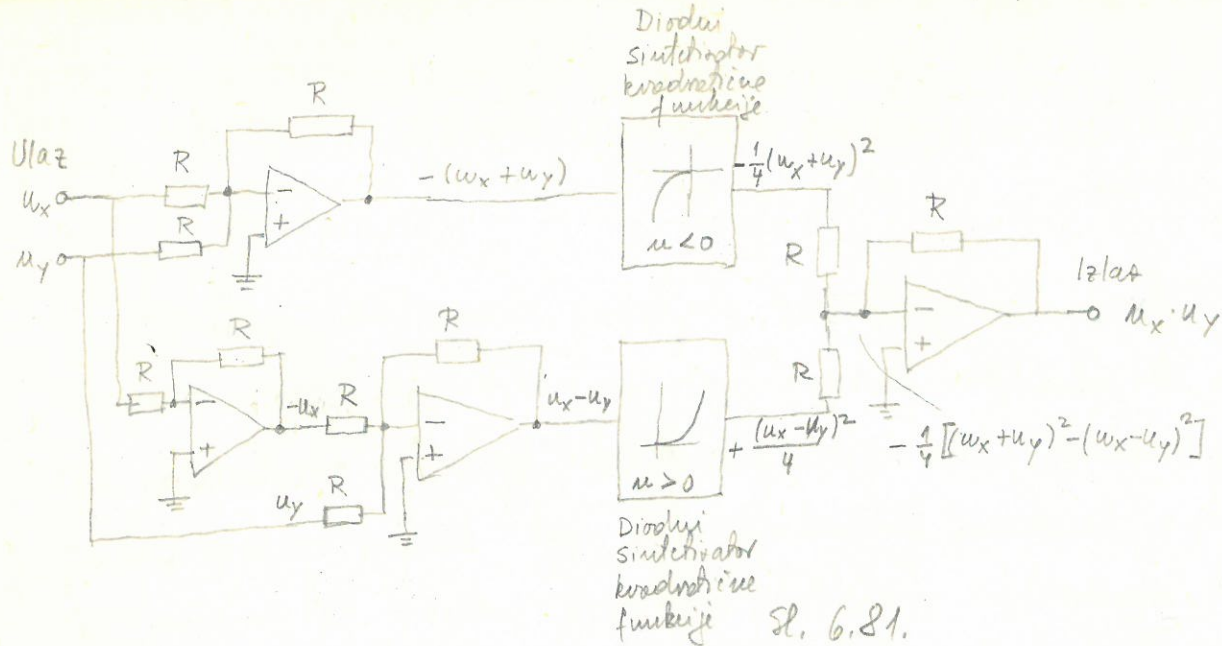 Diodni
sintetizator
kvadratične
funkcije
R
Ulaz
R
u_x
-(u_x+u_y)
-1/4(u_x+u_y)^2
R
-
+
R
u_y
u<0
R
R
Izlaz
-
+
u_x·u_y
R
R
R
R
-
+
-u_x
R
-
+
u_x-u_y
+ (u_x-u_y)^2/4
-1/4[(u_x+u_y)^2-(u_x-u_y)^2]
u>0
u_y
R
Diodni
sintetizator
kvadratične
funkcije
Sl. 6.81.